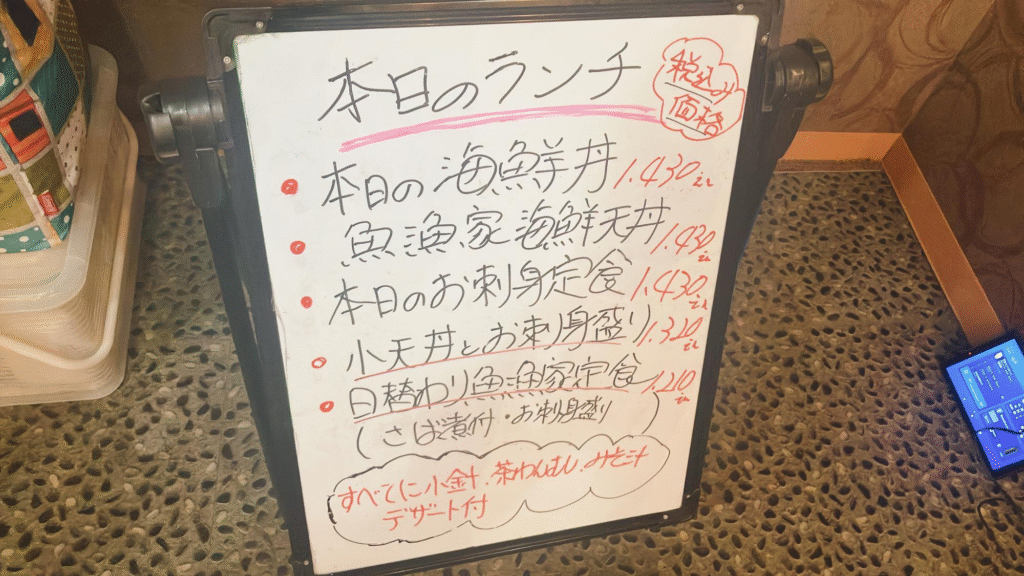 本日のランチ
税込み
価格
本日の海鮮丼 1.430
魚漁家海鮮天丼 1.430
本日のお刺身定食 1.430
小天丼とお刺身盛り 1.320
日替わり魚漁家定食 1.210
(さば煮付・お刺身盛り)
すべてに小鉢.茶わんむし.みそ汁
デザート付